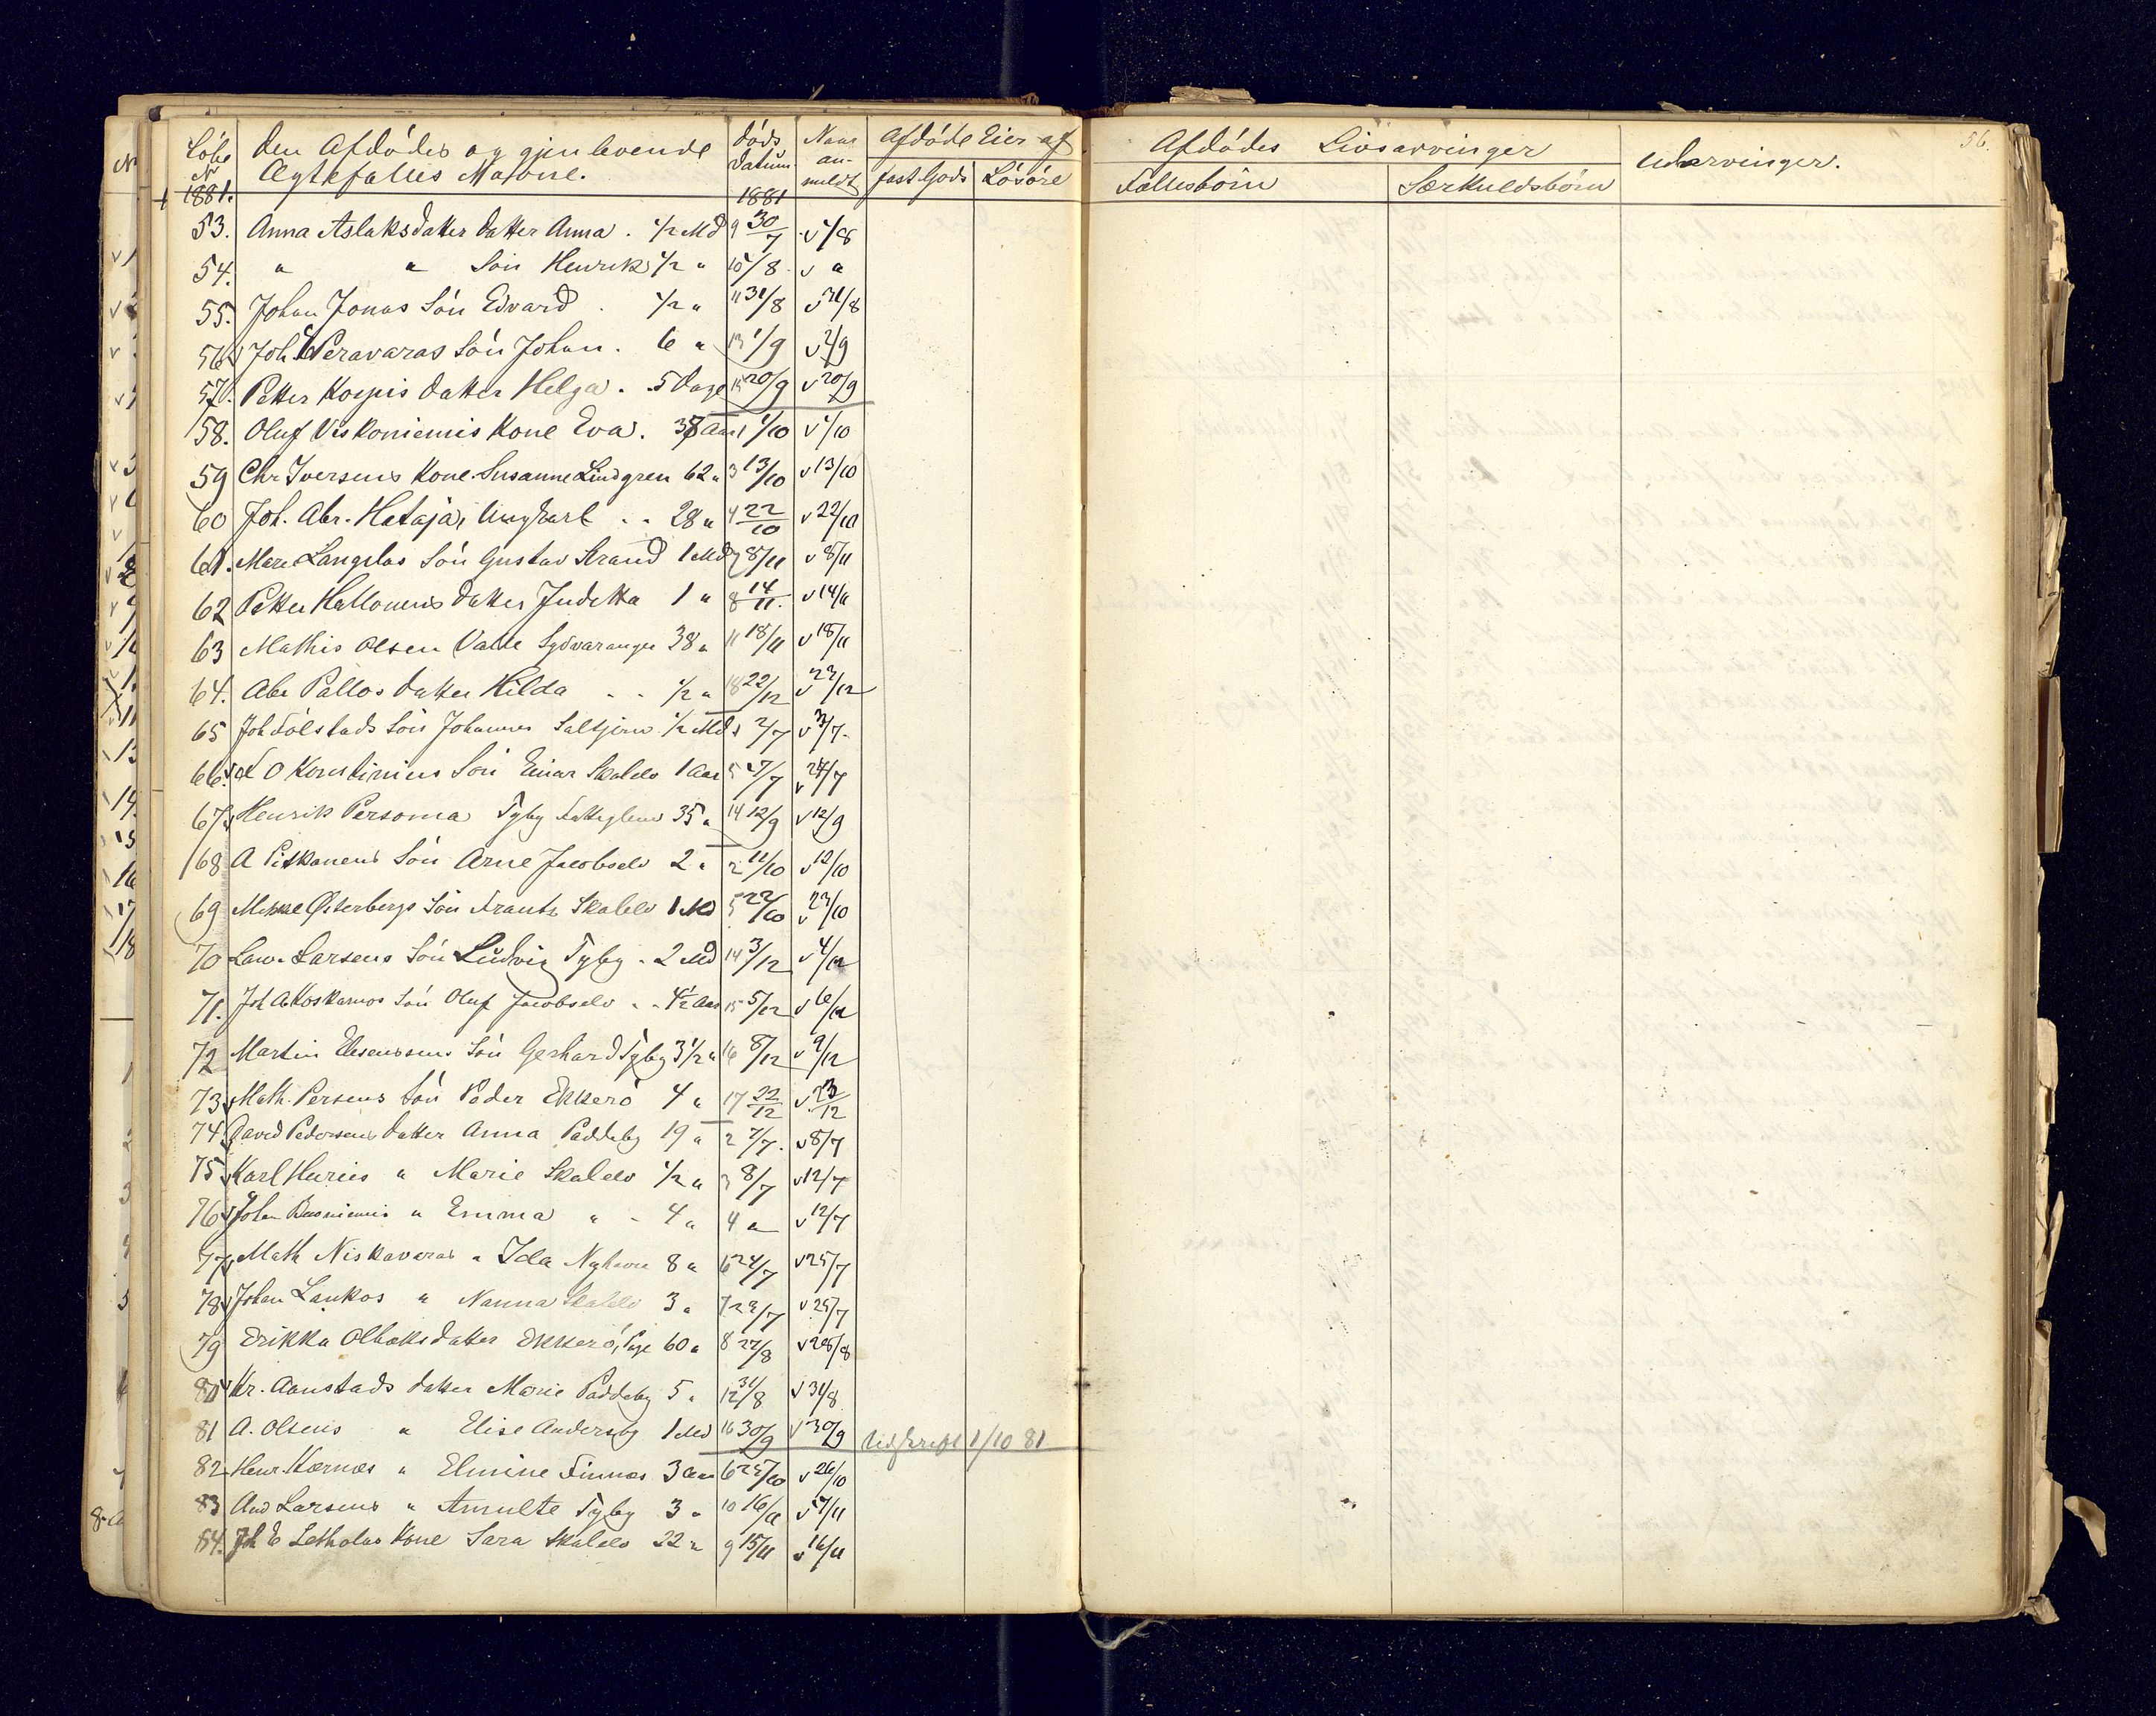 Löbe Den Afdödes og gjenlevende Döds Naar Afdöde Eier af
No Ægtefælles Navne. Datum an- fast Gods Lösöre
1881. 1881 meldt
53. Anna Aslaksdatter Datter Anna . 1/2 Md 9 30/7 v 1/8
54. " " Sön Henrik 1/2 " 10 /8 v "
55. Johan Jonas Sön Edvard . 1/2 " 11 31/8 v 31/8
56 Joh. Peravaras Sön Johan . 6 " 13 1/9 v 2/9
57. Petter Korpis Datter Helga . 5 Dage 15 20/9 v 20/9
58. Oluf Viskoniemis Kone Eva . Aar 1 1/10 v 1/10
59 Chr Iversens Kone Susanne Lindgren 62 " 3 13/10 v 13/10
60 Joh. Abr. Hataja, Ungkarl . . 28 " 4 22/10 v 22/10
61. Mare Langelas Sön Gustav Strand 1 Md 7 8/11 v 8/11
62 Petter Hallonens Datter Judetta 1 " 8 14/11. v 14/11
63 Mathis Olsen Valle Sydvaranger 38 " 11 18/11 v 18/11
64. Abr Pallos Datter Hilda . . 1/2 " 18 22/12 v 22/12
65 Joh Fölstads Sön Johannes Saltjern 1/2 Md 1 2/7 v 3/7
66. O Konstinius Sön Einar Skalelv 1 Aar 5 /7 v 24/7
67 Henrik Persoma Tyby 35 " 14 12/9 v 12/9
68 A Pitkanens Sön Arne Jacobselv 2 " 2 11/10 v 12/10
69 Østerbergs Sön Frants Skalelv 1 Md 5 22/10 v 23/10
70 Law. Larsens Sön Ludvig Tyby . 2 Md 14 3/12 v 4/12
71. Joh A Koskamos Sön Oluf Jacobselv . . 4 1/2 Aar 15 5/12 v 6/12
72 Martin Sön Gerhard Tyby 3 1/2 " 16 8/12 v 9/12
73 Math. Persens Sön Peder Ekkerö 4 " 17 22/12 v 23/12
74 David Pedersens Datter Anna Paddeby 19 " 2 7/7 . v 8/7
75 Karl Huries " Marie Skalelv 1/2 " 3 8/7 v 12/7
76 Johan " Emma " - 4 " 4 " v 12/7
77 Math Niskavaras " Ida Nyhavn 8 " 6 24/7 v 25/7
78 Johan Lankos " Nanna Skalelv 3 " 7 /7 v 25/7
79 Erikka Olbaksdatter Ekkerö, Pige 60 " 8 27/8 v 28/8
80 Kr. Aanstads Datter Marie Paddeby 5 " 12 31/8 v 31/8
81 A. Olsens " Elise Andersby 1 Md 16 30/9 v 30/9 Udskrift 1/10 81
82 Henr. Kornæs " Elmine Finnæs 3 Aar 6 25/10 v 26/10
83 And Larsens " Amulte Tyby 3 " 10 16/11 v 17/11
84. Joh E Letholas Kone Sara Skalelv 22 " 9 15/11 v 16/11
56.
Afdödes Livsarvinger Udarvinger.
Fællesbörn Særkuldsbörn